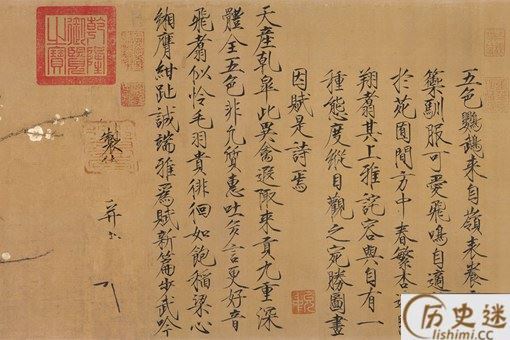 五色鸚鵡來自嶺表養
籞馴服可愛飛鳴自適
於苑囿間方中春繁杏
翔翥其上雅詫容與自有一
種態度縱目觀之宛勝圖畫
因賦是詩焉
天產乾皋此異禽遐陬來貢九重深
體全五色非凡質惠吐多言更好音
飛翥似憐毛羽貴徘徊如飽稻粱心
緗膺紺趾誠端雅為賦新篇步武吟
製
乾隆御覽之寶
历史迷
lishimi.cc